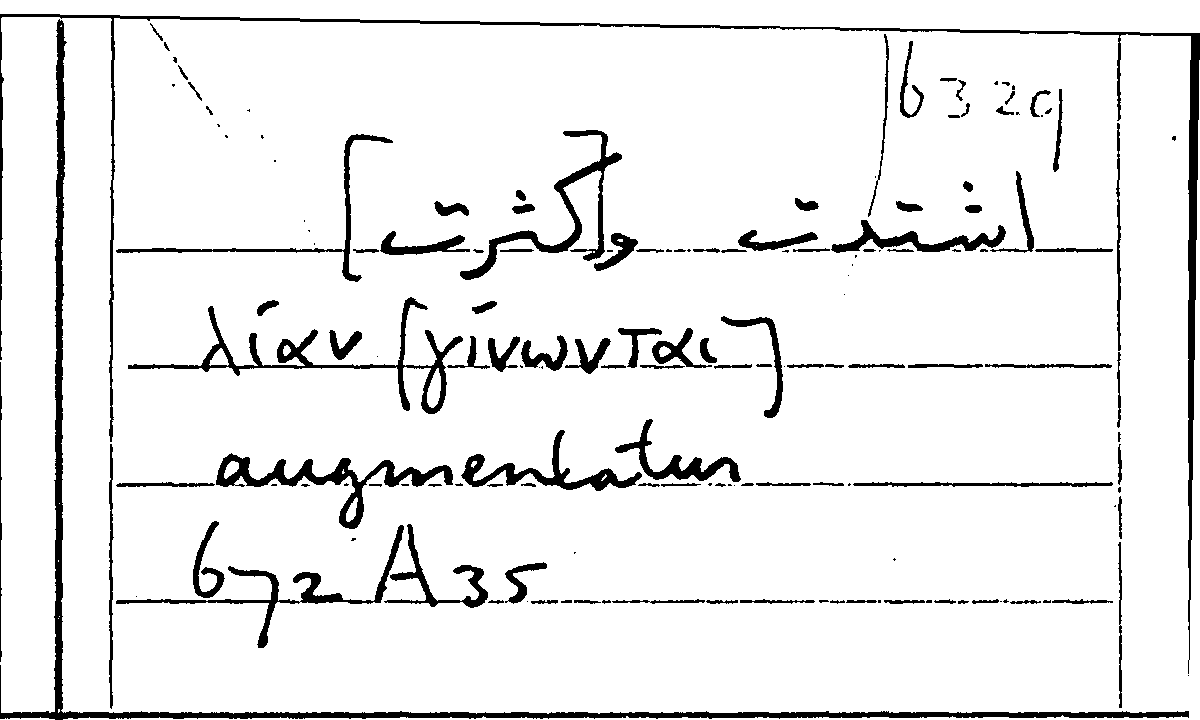 6329
اشتدت [وكثرت]
λίαν [γίνωνται]
augmentatur
672 A 35